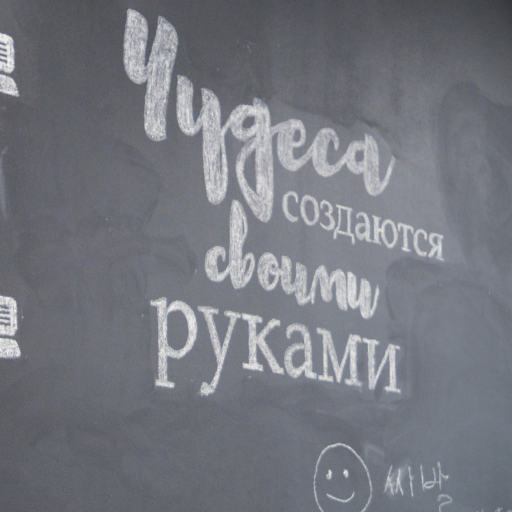 Чудеса
создаются
своими
руками